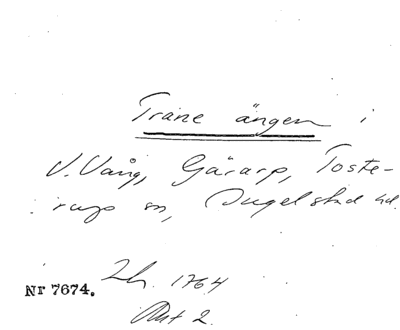 Träne ängen i
V. Vång, Gärarp, Toste-
rups sn, Ingelstad hd.
Lh. 1764
Nr 7674.
Akt 2.